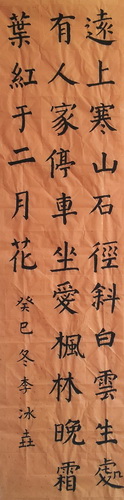 遠上寒山石徑斜白雲生處
有人家停車坐愛楓林晚霜
葉紅于二月花
癸巳冬李冰垚